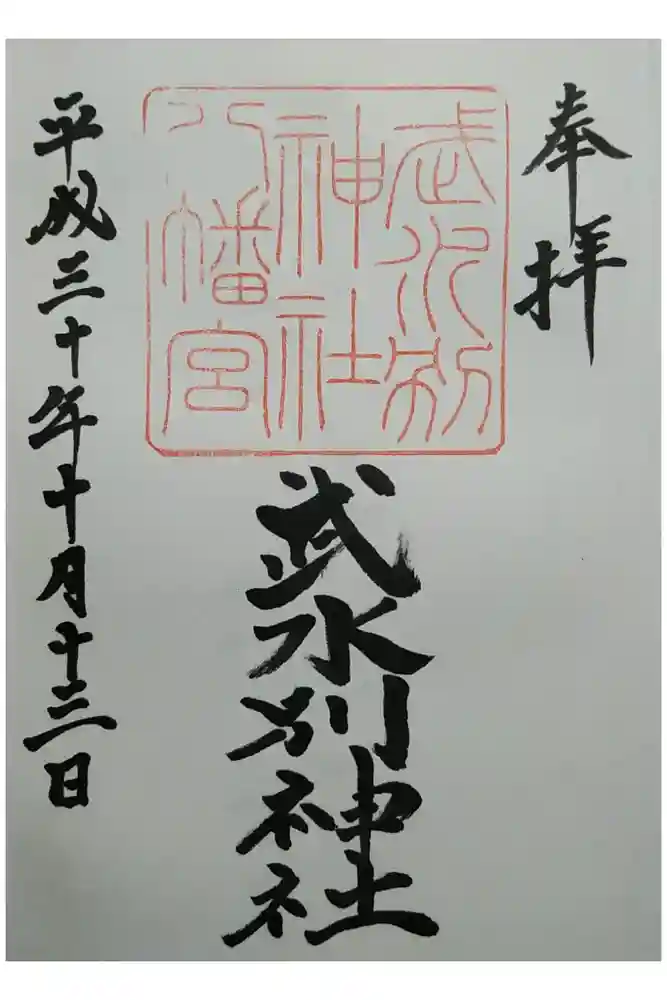 奉拝
武水別
神社
八幡宮
武水別神社
平成三十年十月十三日